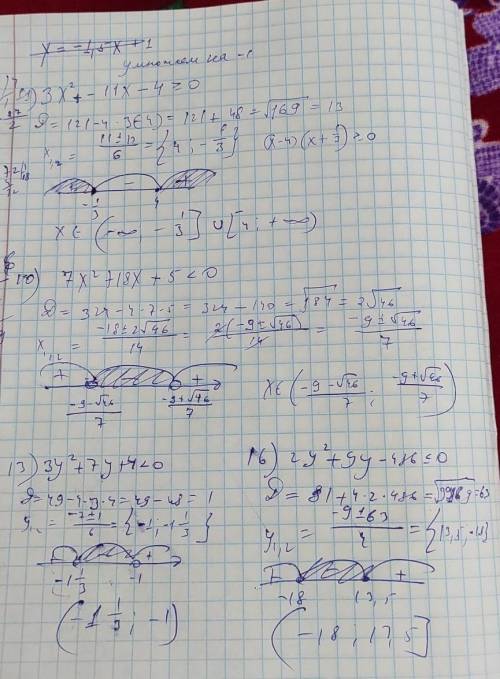 y = -1,5x + 1
умножем на -1
11) 3x² - 11x - 4 ≥ 0
D = 121 - 4 · 3(-4) = 121 + 48 = √169 = 13
x₁,₂ = (11 ± 13)/6 = {4; -1/3} (x-4)(x+1/3) ≥ 0
+ - +
-1/3 4
x ∈ (-∞; -1/3] ∪ [4; +∞)
10) 7x² + 18x + 5 < 0
D = 324 - 4 · 7 · 5 = 324 - 140 = √184 = 2√46
x₁,₂ = (-18 ± 2√46)/14 = 2(-9 ± √46)/14 = (-9 ± √46)/7
+ +
(-9-√46)/7 (-9+√46)/7
x ∈ ((-9-√46)/7; (-9+√46)/7)
13) 3y² + 7y + 4 < 0
D = 49 - 4 · 3 · 4 = 49 - 48 = 1
y₁,₂ = (-7 ± 1)/6 = {-1; -1 1/3}
+ +
-1 1/3 -1
(-1 1/3; -1)
16) 2y² + 9y - 486 ≤ 0
D = 81 + 4 · 2 · 486 = √3969 = 63
y₁,₂ = (-9 ± 63)/4 = {13,5; -18}
+ +
-18 13,5
(-18; 13,5]